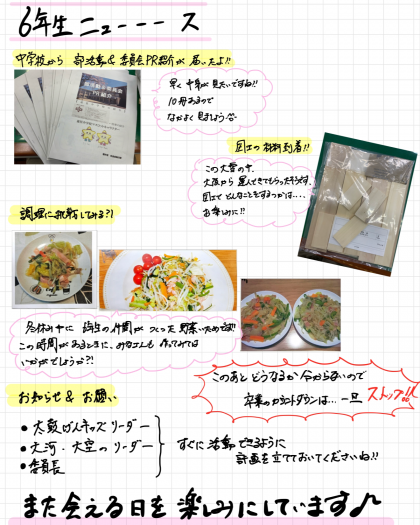 6年生ニューーース
中学校から 部活動&委員会PR紹介が届いたよ!!
部活動&委員会
PR紹介
早く中身が見たいですね!!
10冊あるので
なかよく見ましょうね
図工の材料到着!!
この大雪の中、
大阪から運んできてもらったそうです。
図工でどんなことをするつかは....
お楽しみに!!
調理に挑戦してみる?!
冬休み中に 6年生の仲間がつくった野菜いためです!!
この時間があるときに、みなさんも作ってみては
いかがでしょうか?!
このあとどうなるか分からないので
卒業のカウントダウンは...一旦ストップ!!
お知らせ&お願い
・太鼓げんキッズリーダー
・大河・大空のリーダー
・委員長
すぐに活動できるように
計画を立てておいてくださいね!!
また会える日を楽しみにしています♪